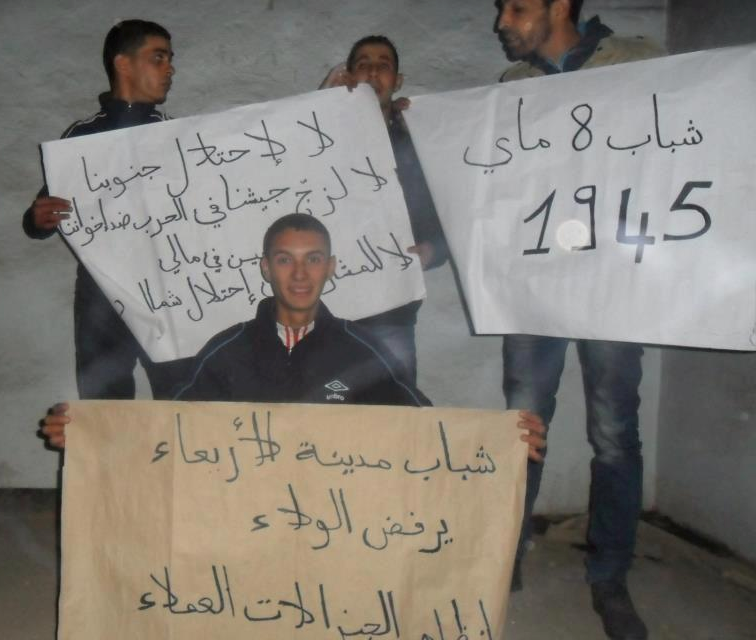 لا لإحتلال جنوبنا
لا لزجّ جيشنا في الحرب ضد اخواننا
في مالي
إحتلال شمال
شباب 8 ماي
1945
شباب مدينة الأربعاء
يرفض الولاء
لنظام الجنرالات العملاء
umbro